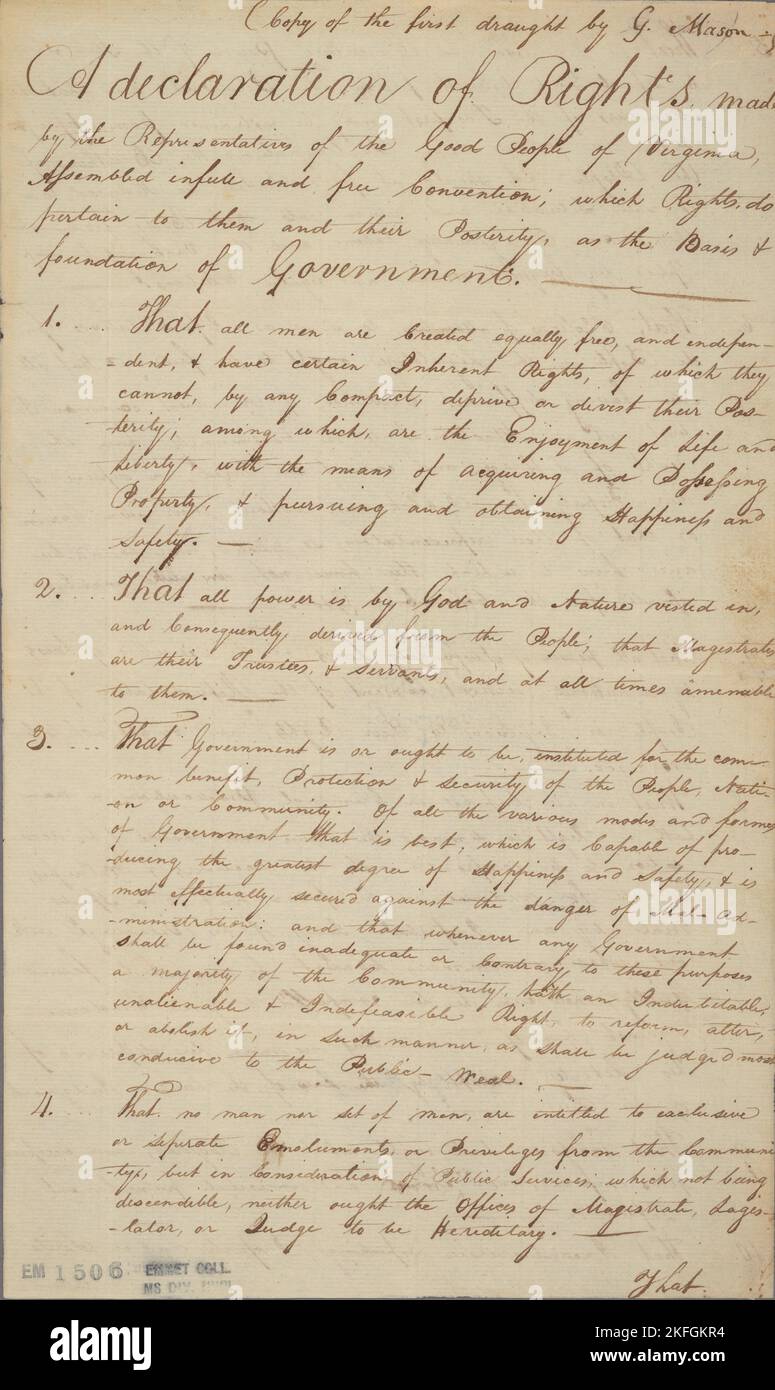 (Copy of the first draught by G. Mason
A declaration of Rights made
by the Representatives of the Good People of Virginia,
Assembled in full and free Convention; which Rights, do
pertain to them and their Posterity, as the Basis &
foundation of Government.
1. That all men are Created equally free, and indepen-
-dent, & have certain Inherent Rights, of which they
cannot, by any Compact, deprive or divest their Pos-
-terity; among which, are the Enjoyment of Life and
Liberty, with the means of acquiring and Possessing
Property, & pursuing and obtaining Happiness and
Safety.
2. That all power is by God and Nature vested in,
and Consequently derived from the People; that Magistrates
are their Trustees, & Servants, and at all times amenable
to them.
3. That Government is or ought to be, instituted for the com-
mon benefit, Protection & security of the People, Nati-
-on or Community. Of all the various modes and formes
of Government that is best, which is Capable of pro-
-ducing the greatest degree of Happiness and Safety, & is
most effectually secured against the danger of Mal-ad-
-ministration: and that whenever any Government
shall be found inadequate or Contrary to these purposes
a majority of the Community, hath an Indubitable,
unalienable & Indefeasible Right, to reform, alter,
or abolish it, in such manner, as shall be judged most
conducive to the Public-Weal.
4. That no man nor set of men, are intitled to exclusive
or seperate Emoluments, or Priviliges from the Communi
-ty, but in Consideration of Public Services; which not being
descendible, neither ought the Offices of Magistrate, Legis-
-lator, or Judge to be Hereditary.
That
EM 1506 EMMET COLL.
MS DIV.
alamy
Image ID: 2KFGKR4
www.alamy.com